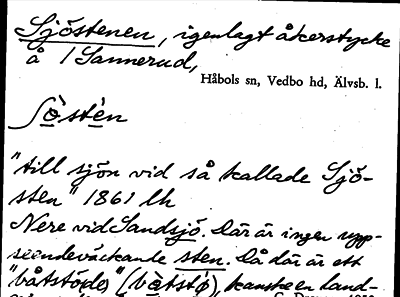 Sjöstenen, igenlagt åkerstycke
å 1 Sannerud,
Håbols sn, Vedbo hd, Älvsb. l.
"till sjön vid så kallade Sjö-
sten" 1861 lh
Nere vid Sandsjö. Där är ingen upp-
seendeväckande sten. Då där är ett
"båtstö", kanske en land-